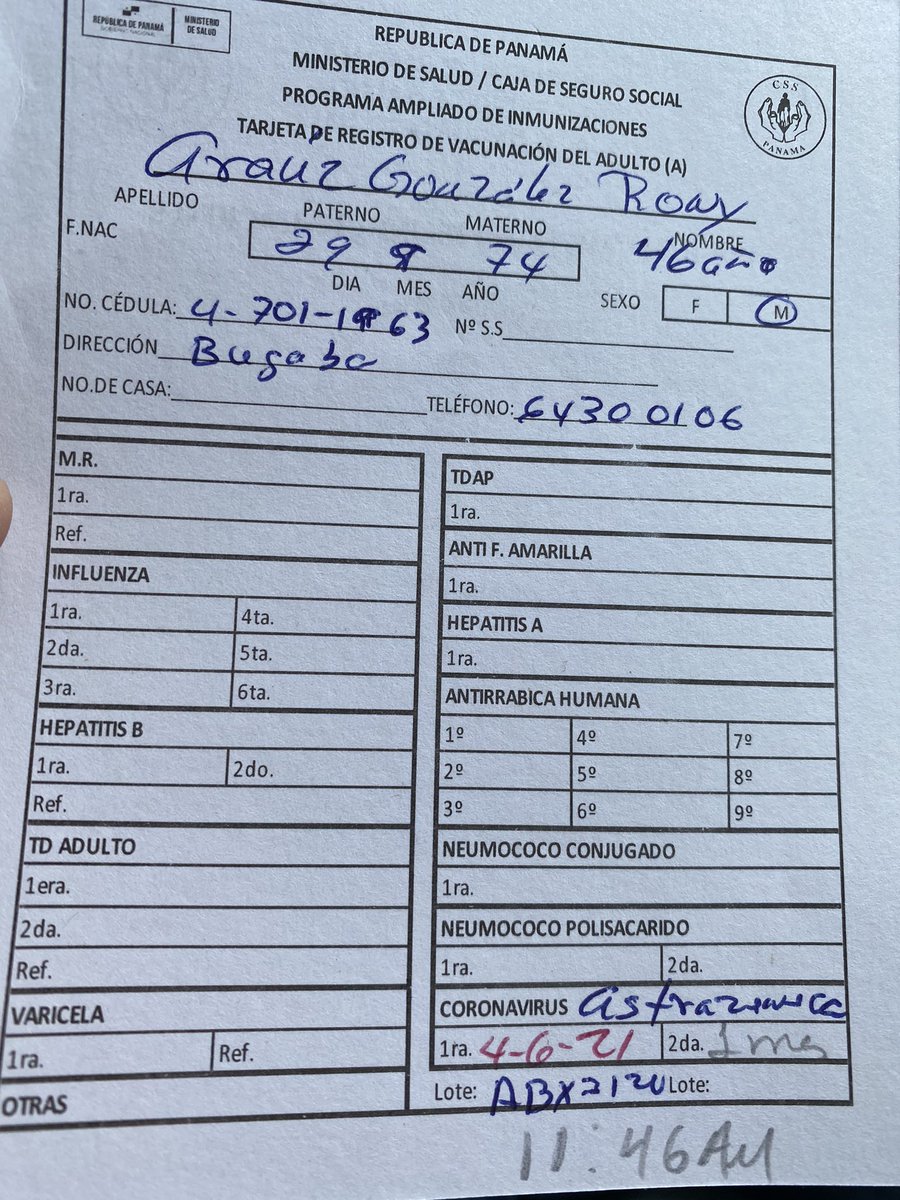 REPÚBLICA DE PANAMÁ
GOBIERNO NACIONAL
MINISTERIO
DE SALUD
REPUBLICA DE PANAMÁ
MINISTERIO DE SALUD / CAJA DE SEGURO SOCIAL
PROGRAMA AMPLIADO DE INMUNIZACIONES
TARJETA DE REGISTRO DE VACUNACIÓN DEL ADULTO (A)
CSS
PANAMA
Arauz González Rony
APELLIDO PATERNO MATERNO NOMBRE
F.NAC 29 74 46 año
DIA MES AÑO SEXO F M
NO. CÉDULA: 4-701- Nº S.S
DIRECCIÓN Bugaba
NO.DE CASA: TELÉFONO: 64300106
M.R.
1ra.
Ref.
INFLUENZA
1ra. 4ta.
2da. 5ta.
3ra. 6ta.
HEPATITIS B
1ra. 2do.
Ref.
TD ADULTO
1era.
2da.
Ref.
VARICELA
1ra. Ref.
OTRAS
TDAP
1ra.
ANTI F. AMARILLA
1ra.
HEPATITIS A
1ra.
ANTIRRABICA HUMANA
1º 4º 7º
2º 5º 8º
3º 6º 9º
NEUMOCOCO CONJUGADO
1ra.
NEUMOCOCO POLISACARIDO
1ra. 2da.
CORONAVIRUS
1ra. 4-6-21 2da.
Lote: Lote:
11:46AM